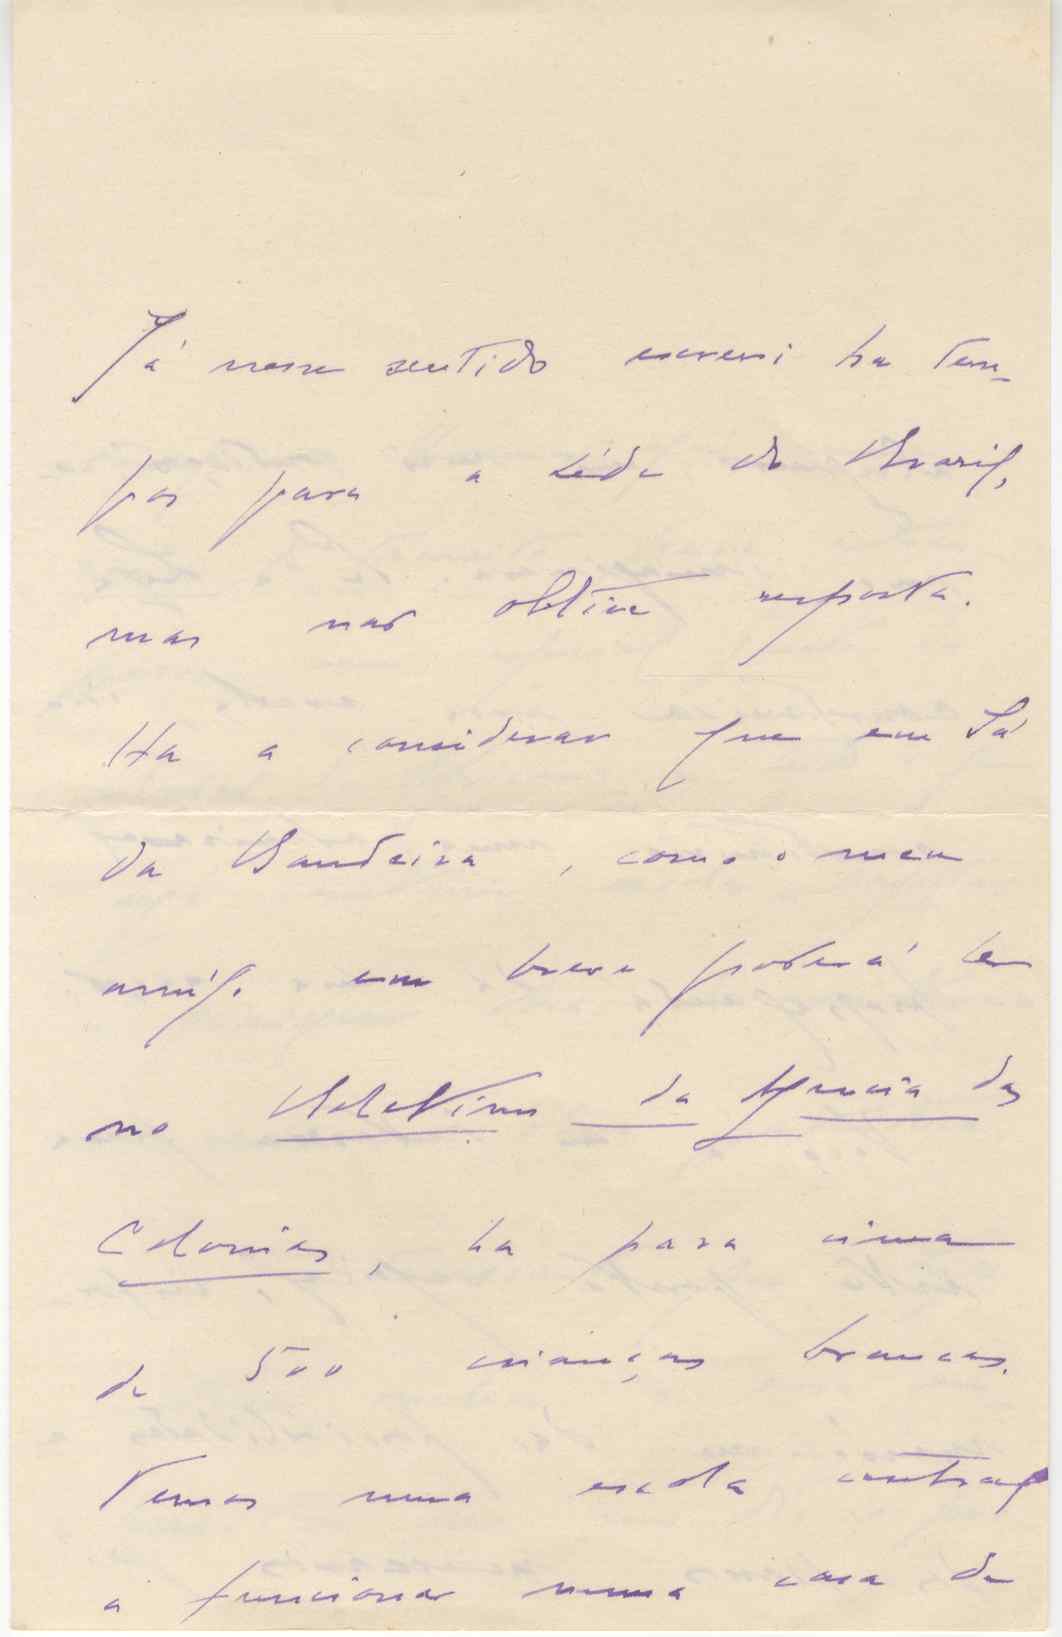 Já nesse sentido escrevi ha tem-
pos para a séde do Brasil,
mas não obtive resposta.
Ha a considerar que em Sá
da Bandeira, como o meu
amigo em breve poderá ler
no Boletim da Agencia das
Colonias, ha para cima
de 500 crianças brancas.
Temos uma escola central
a funcionar numa casa de